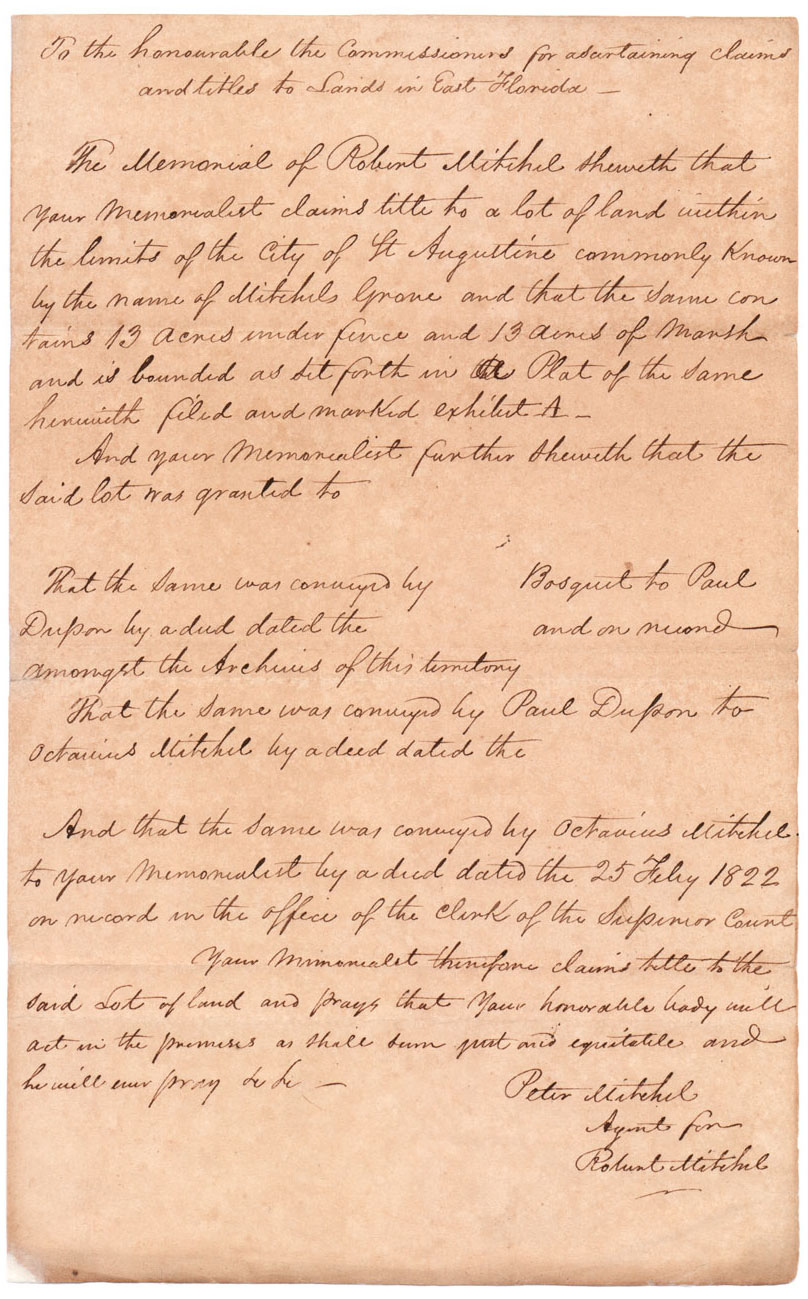 To the honourable the Commissioners for asertaining claims
and titles to Lands in East Florida —
The Memorial of Robert Mitchel sheweth that
your Memorialist claims title to a lot of land within
the limits of the City of St Augustine commonly Known
by the name of Mitchels Grove and that the same con
tains 13 acres under fence and 13 acres of Marsh
and is bounded as set forth in a Plat of the same
herewith filed and marked exhibit A —
And your Memorialist further sheweth that the
said lot was granted to
That the same was conveyed by Bosquet to Paul
Dupon by a deed dated the and on record
amongst the Archives of this territory
That the same was conveyed by Paul Dupon to
Octavius Mitchel by a deed dated the
And that the same was conveyed by Octavius Mitchel
to your Memorialist by a deed dated the 25 Feby 1822
on record in the office of the clerk of the Superior Court
Your Memorialist therefore claims title to the
said Lot of land and prays that Your honorable body will
act in the premises as shall seem just and equitable and
he will ever pray &c &c —
Peter Mitchel
Agent for
Robert Mitchel